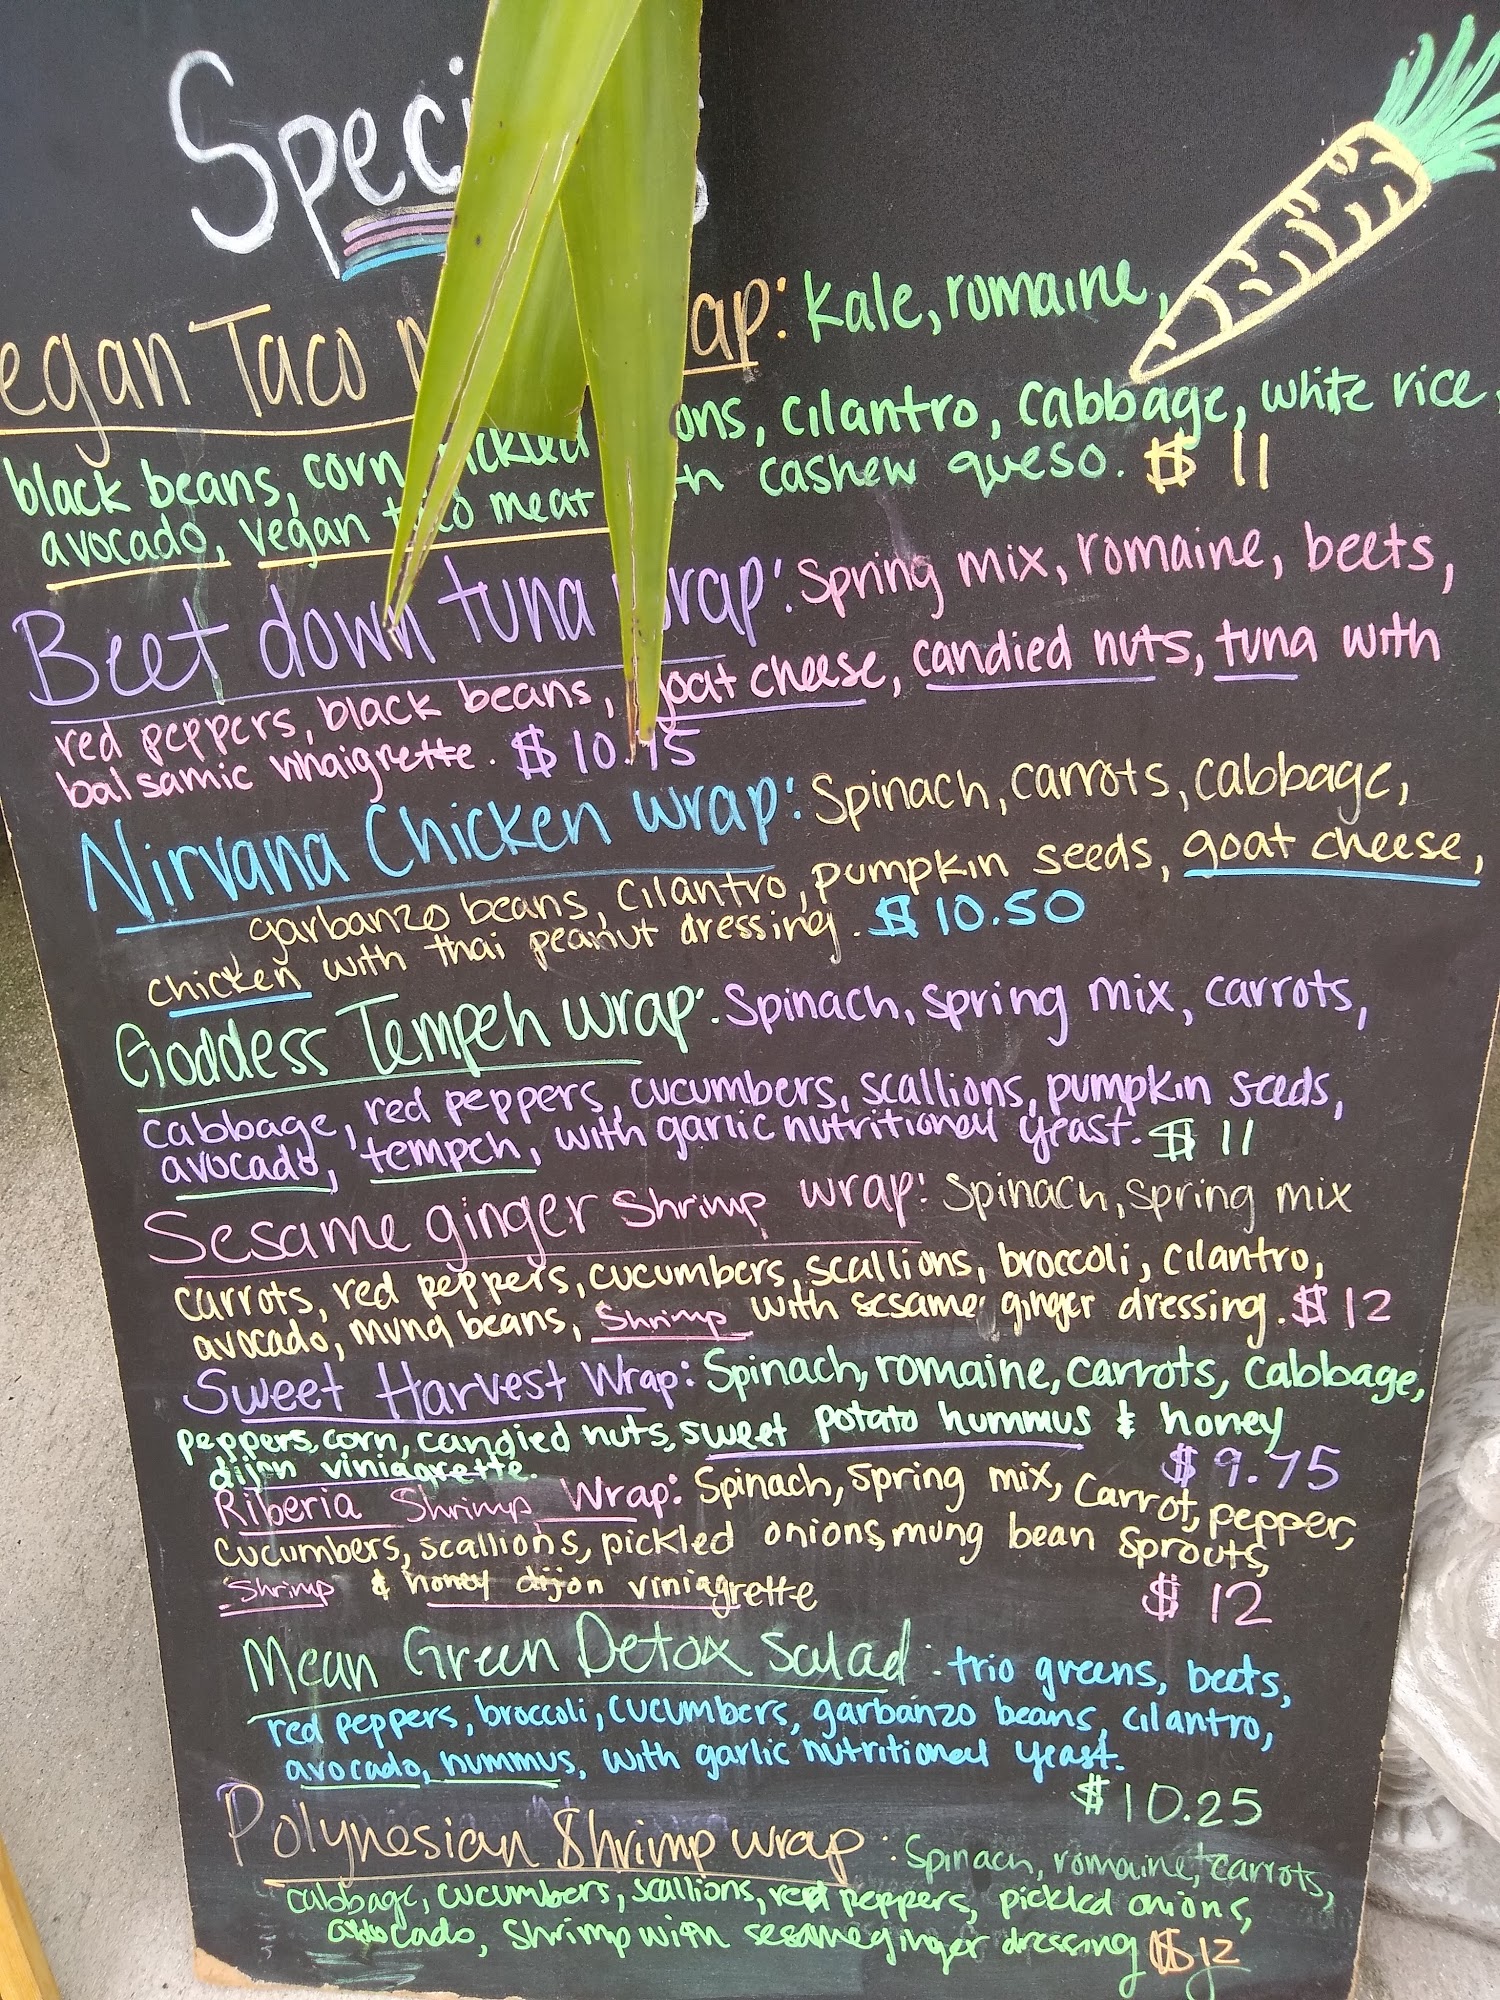 Speci
egan Taco ap: Kale, romaine,
ons, cilantro, cabbage, white rice,
black beans, corn, ickled
avocado, vegan taco meat th cashew queso. $ 11
Beet down tuna wrap: Spring mix, romaine, beets,
red peppers, black beans, goat cheese, candied nuts, tuna with
balsamic vinaigrette. $ 10.75
Nirvana Chicken wrap: Spinach, carrots, cabbage,
garbanzo beans, cilantro, pumpkin seeds, goat cheese,
chicken with thai peanut dressing. $ 10.50
Goddess Tempeh wrap: Spinach, spring mix, carrots,
cabbage, red peppers, cucumbers, scallions, pumpkin seeds,
avocado, tempeh, with garlic nutritional yeast. $ 11
Sesame ginger Shrimp wrap: Spinach, spring mix
carrots, red peppers, cucumbers, scallions, broccoli, cilantro,
avocado, mung beans, Shrimp with sesame ginger dressing. $ 12
Sweet Harvest Wrap: Spinach, romaine, carrots, cabbage,
peppers, corn, candied nuts, sweet potato hummus & honey
dijon viniagrette. $ 9.75
Riberia Shrimp Wrap: Spinach, spring mix, carrot, pepper,
cucumbers, scallions, pickled onions, mung bean sprouts,
Shrimp & honey dijon viniagrette $ 12
Mean Green Detox Salad: trio greens, beets,
red peppers, broccoli, cucumbers, garbanzo beans, cilantro,
avocado, hummus, with garlic nutritional yeast.
$ 10.25
Polynesian Shrimp wrap: Spinach, romaine, carrots,
cabbage, cucumbers, scallions, red peppers, pickled onions,
avocado, Shrimp with sesame ginger dressing $12